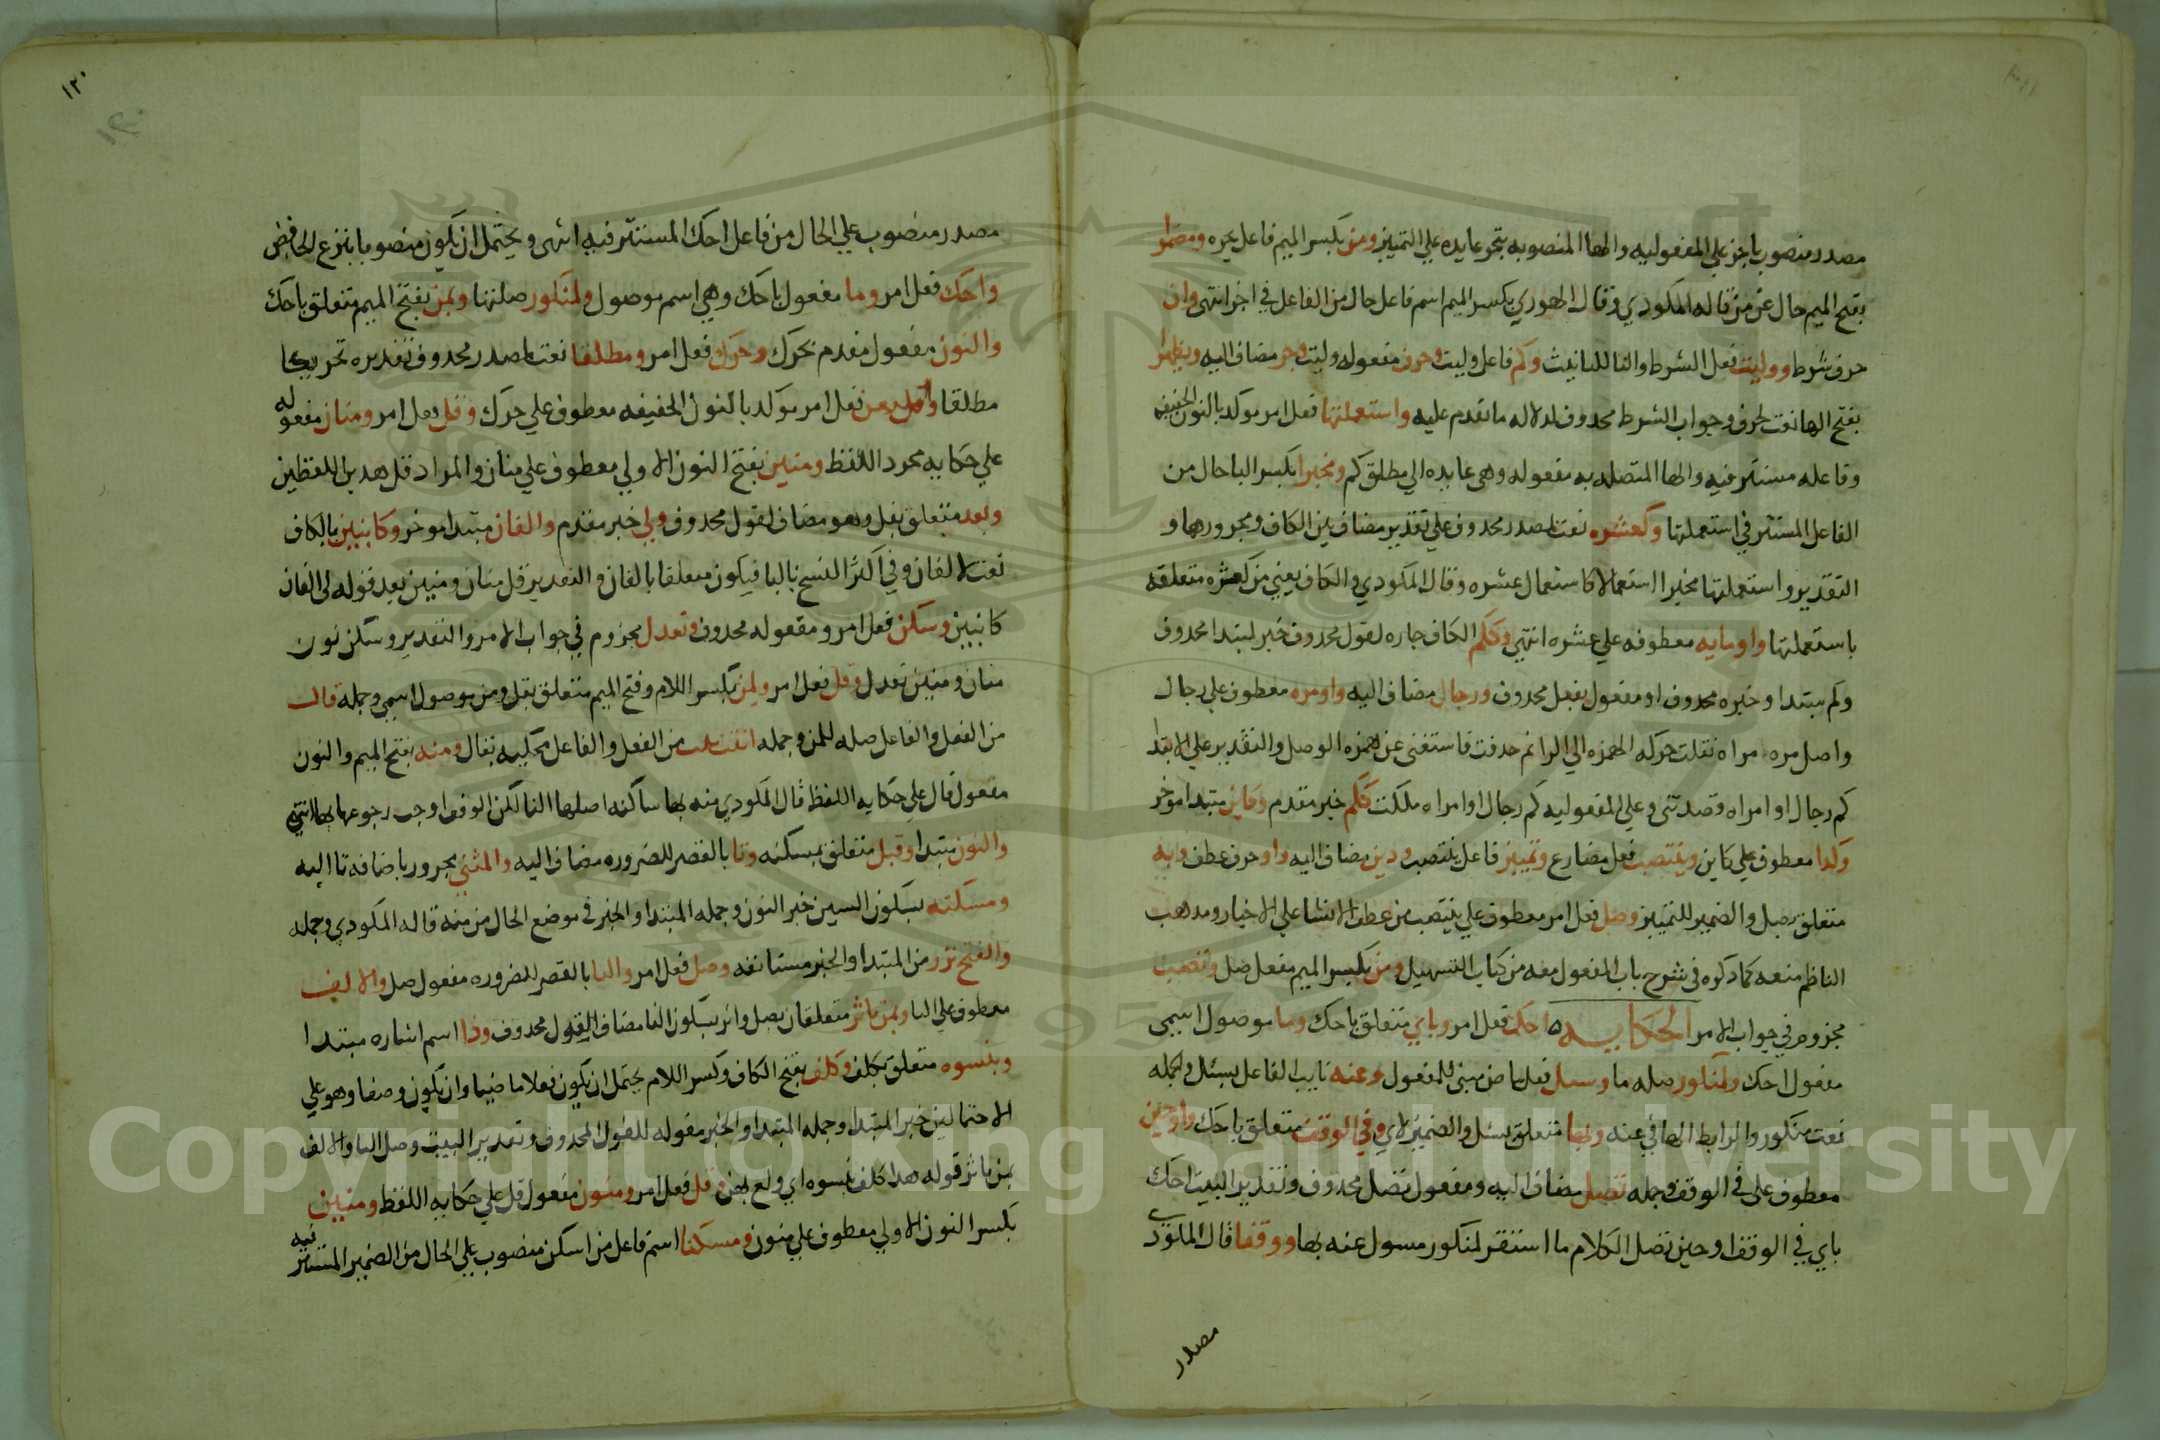 مصدر منصوب باجز علي المفعوليه والها المنصوبه بتجر عايده علي التمييز ومن بكسر الميم فاعل بجره ومضمرا
بفتح الميم حال من من قاله المكودي وقال الهوري بكسر الميم اسم فاعل حال من الفاعل في اجز انتهى وان
حرف شرط ووليت فعل الشرط والتا للتانيث وكم فاعل وليت وحرف مفعوله وليت وجر مضاف اليه ويظهرا
بفتح الها نعت لحرف وجواب الشرط محدوف لدلاله ما تقدم عليه واستعملنها فعل امر موكد بالنون الخفيفه
وفاعله مستتر فيه والها المتصله به مفعوله وهي عايده الي مطلق كم ومخبرا بكسر البا حال من
الفاعل المستتر في استعملنها وكعشره نعت لمصدر محدوف علي تقدير مضاف بين الكاف ومجرورها و
التقدير واستعملنها مخبرا استعمالا كاستعمال عشره وقال المكودي والكاف يعني من كعشره متعلقه
باستعملنها واومايه معطوفه علي عشره انتهي وككم الكاف جاره لقول محدوف خبر لمبتدا محدوف
وكم مبتدا وخبره محدوف او مفعول بفعل محدوف ورجال مضاف اليه واومره معطوف علي رجال
واصل مره امراه نقلت حركه الهمزه الي الرا ثم حدفت فاستغني عن همزه الوصل والتقدير علي الابتدا
كم رجال او امراه وقصدتني وعلي المفعوليه كم رجال او امراه ملكت ككم خبر مقدم وكاين مبتدا موخر
وكدا معطوف علي كاين وينتصب فعل مضارع وتمييز فاعل ينتصب ودين مضاف اليه واو حرف عطف وبه
متعلق بصل والضمير للتمييز وصل فعل امر معطوف علي ينتصب من عطف الانشا علي الاخبار ومدهب
الناظم منعه كما دكره في شرح باب المفعول معه من كتاب التسهيل ومن بكسر الميم مفعل صل وتصب
مجزوم في جواب الامر الحكايــه احك فعل امر وباي متعلق باحك وما موصول اسمي
مفعول احك ولمنكور صله ما وسيل فعل ماض مبني للمفعول وعنه نايب الفاعل بسئل والجمله
نعت منكور والرابط الها في عنه وبها متعلق بسئل والضمير لاي وفي الوقف متعلق باحك واو حين
معطوف علي في الوقف وجمله تصل مضاف اليه ومفعول تصل محدوف وتقدير البيت احك
باي في الوقف او حين تصل الكلام ما استقر لمنكور مسول عنه بها ووقفا قال المكودي
مصدر
١٢٠
١٢٠
مصدر منصوب علي الحال من فاعل احك المستتر فيه انتهى ويحتمل ان يكون منصوبا بنزع الخافض
واحك فعل امر وما مفعول باحك وهي اسم موصول ولمنكور صلتها وبمن بفتح الميم متعلق باحك
والنون مفعول مقدم بحرك وحرك فعل امر ومطلقا نعت لمصدر محدوف تقديره تحريكا
مطلقا واشبعن فعل امر موكد بالنون الخفيفه معطوف علي حرك وقل فعل امر ومنان مفعوله
علي حكايه مجرد اللفظ ومنين بفتح النون الاولي معطوف علي منان والمراد قل هدين اللفظين
وبعد متعلق بقل وهو مضاف لقول محدوف ولي خبر مقدم والفان مبتدا موخر وكابنين بالكاف
نعت لالفان وفي اكثر النسخ بالبا فيكون متعلقا بالفان والتقدير قل منان ومنين بعد قوله لي الفان
كابنين وسكن فعل امر ومفعوله محدوف وتعدل مجزوم في جواب الامر والتقدير وسكن نون
منان ومنين تعدل وقل فعل امر ولمن بكسر اللام وفتح الميم متعلق بقل ومن موصول اسمي وجمله قالت
من الفعل والفاعل صله للمن وجمله اتت بنت من الفعل والفاعل محكيه بقال ومنه بفتح الميم والنون
مفعول قال علي حكايه اللفظ قال المكودي منه بها ساكنه اصلها التا لكن الوقف اوجب رجوعها بها انتهي
والنون مبتدا وقبل متعلق بمسكنه وتا بالقصر للضروره مضاف اليه والمثني مجرور باضافه تا اليه
ومسكنه بسكون السين خبر النون وجمله المبتدا والخبر في موضع الحال من منه قاله المكودي وجمله
والفتح نزر من المبتدا والخبر مستانفه وصل فعل امر والتا بالقصر للضروره مفعول صل والالف
معطوف علي التا وبمن باثر متعلقان بصل واثر بسكون الثا مضاف القول محدوف وذا اسم اشاره مبتدا
وبنسوه متعلق بكلف وكلف بفتح الكاف وكسر اللام يحتمل ان يكون فعلا ماضيا وان يكون وصفا وهو علي
الاحتمالين خبر المبتدا وجمله المبتدا والخبر مقوله للقول المحدوف وتقدير البيت وصل التا والالف
بمن باثر قوله هدا كلف بنسوه اي ولع بهن وقل فعل امر ومنون مفعول قل علي حكايه اللفظ ومنين
بكسر النون الاولي معطوف علي منون ومسكنا اسم فاعل من اسكن منصوب علي الحال من الضمير المستتر فيه
Copyright © King Saud University